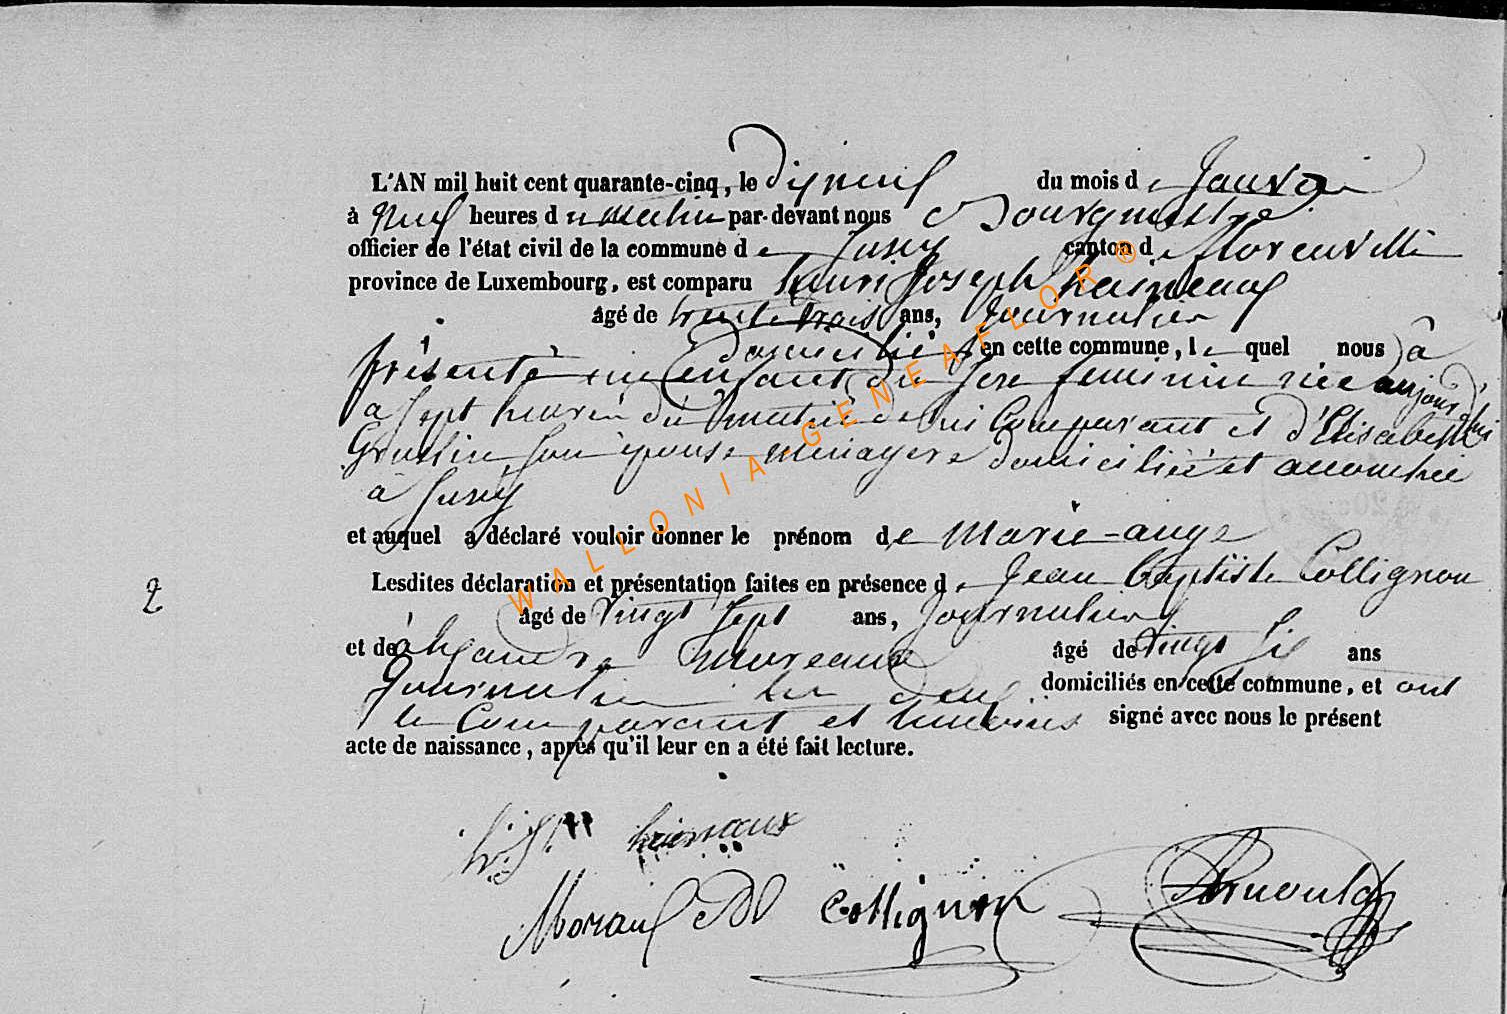 L'AN mil huit cent quarante-cinq, le dixneuf du mois de Janvier
à neuf heures du matin par-devant nous Bourgmestre
officier de l'état civil de la commune de Jusey canton de Florenville
province de Luxembourg, est comparu henri Joseph haineaux
âgé de trente trois ans, Journalier
domicilié en cette commune, lequel nous à
présenté un enfant du sexe feminin née aujourd'hui
a sept heures du matin de lui Comparant et d'Elisabeth
son épouse ménagere domiciliée et accouchée
à Jusey
et auquel a déclaré vouloir donner le prénom de Marie-ange
Lesdites déclaration et présentation faites en présence de Jean Baptiste Collignon
âgé de vingt sept ans, Journalier
et de moreaux âgé de vingt six ans
Journalier les deux domiciliés en cette commune, et ont
le Comparant et temoins signé avec nous le présent
acte de naissance, après qu'il leur en a été fait lecture.
2
h. J. haineaux
Moraux Collignon Arnould
WALLONIA-GENEAFLOR®